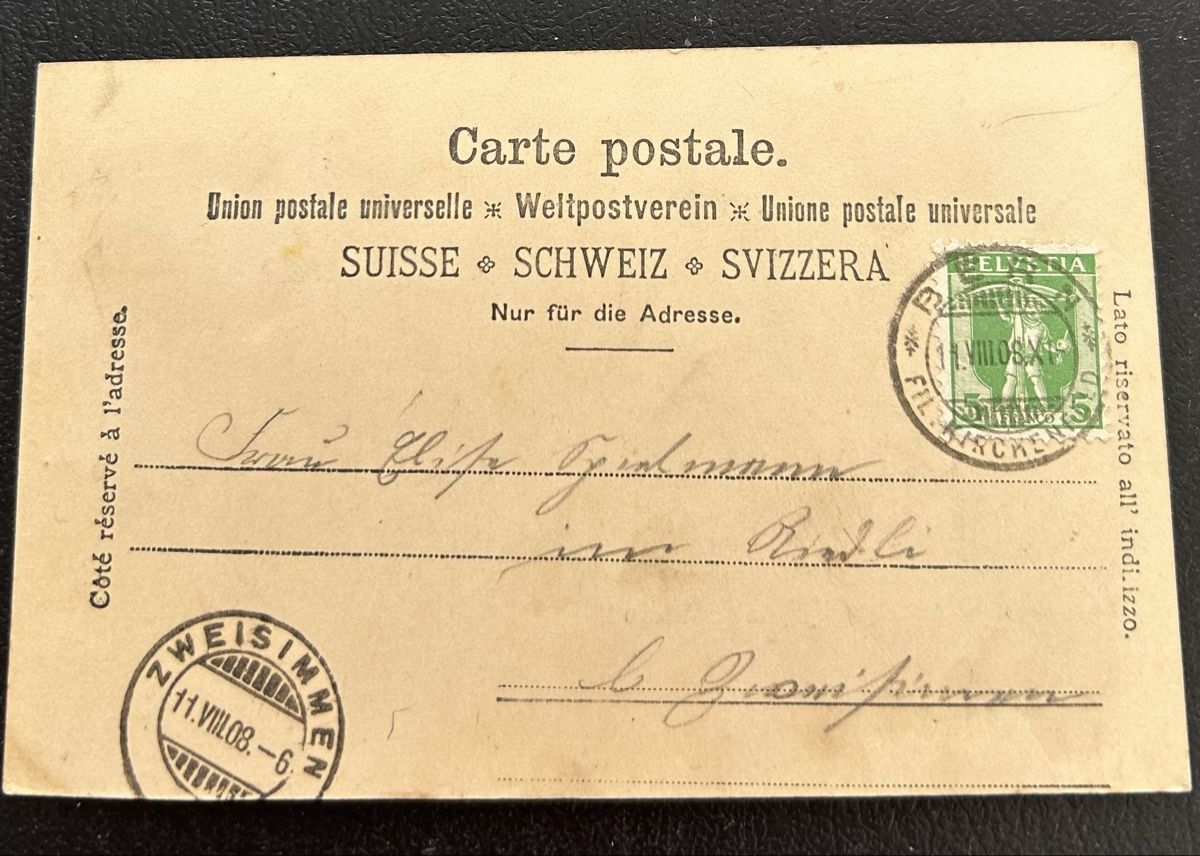 Carte postale.
Union postale universelle ※ Weltpostverein ※ Unione postale universale
SUISSE ❖ SCHWEIZ ❖ SVIZZERA
Nur für die Adresse.
HELVETIA
BERN
11.VIII.08.XI
FIL. KIRCHENFELD
5 FRANCO 5
Côté réservé à l'adresse.
Lato riservato all' indirizzo.
Frau Elise Spielmann
im Riedli
b Zweisimmen
ZWEISIMMEN
11.VIII.08.-6